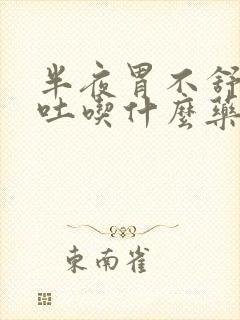 半夜胃不舒
吐喫什麼藥
東南雀